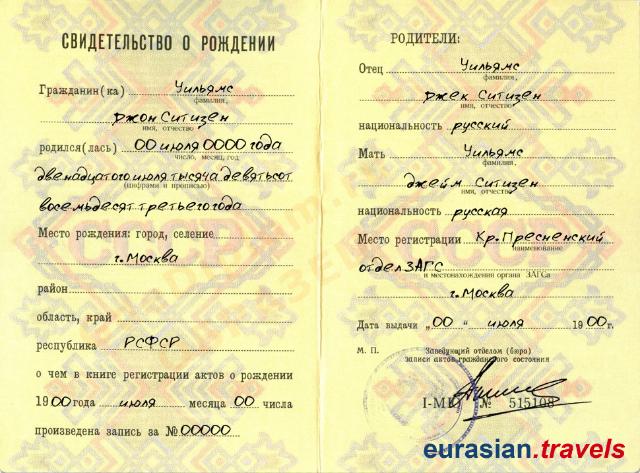 СВИДЕТЕЛЬСТВО О РОЖДЕНИИ
Гражданин(ка) Уильямс
фамилия,
джон Ситизен
имя, отчество
родился(лась) 00 июля 0000 года
число, месяц, год
двенадцатого июля тысяча девятьсот
(цифрами и прописью)
восемьдесят третьего года
Место рождения: город, селение
г. Москва
район
область, край
республика РСФСР
о чем в книге регистрации актов о рождении
1900 года июля месяца 00 числа
произведена запись за № 00000
РОДИТЕЛИ:
Отец Уильямс
фамилия,
джек Ситизен
имя, отчество
национальность русский
Мать Уильямс
фамилия,
джейм Ситизен
имя, отчество
национальность русская
Место регистрации Кр. Пресненский
наименование
отдел ЗАГС
и местонахождения органа ЗАГСа
г. Москва
Дата выдачи „00“ июля 1900г.
М. П. Заведующий отделом (бюро)
записи актов гражданского состояния
№ 515108
eurasian.travels